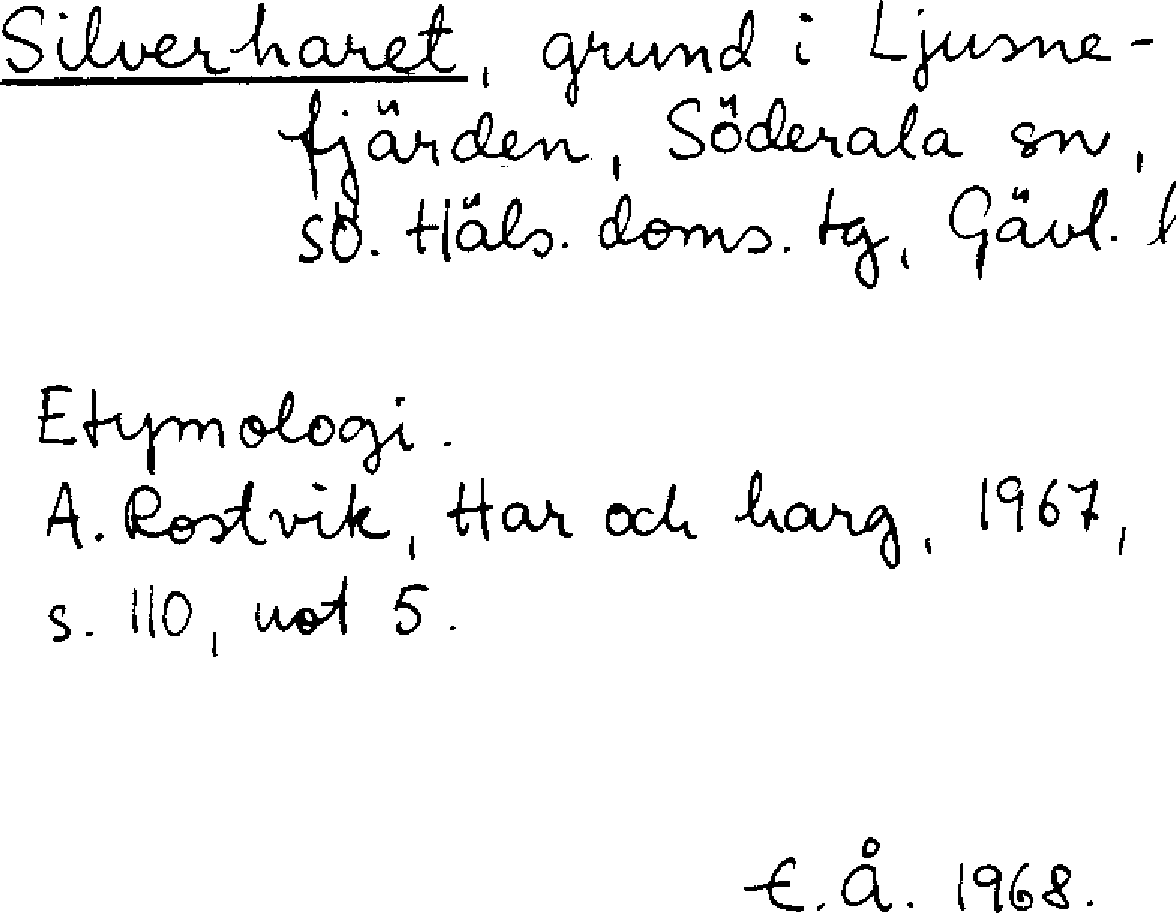 Silverharet, grund i Ljusne-
fjärden, Söderala sn,
sö. Häls. doms. tg, Gävl.
Etymologi.
A. Rostvik, Har och harg, 1967,
s. 110, not 5.
E.Å. 1968.